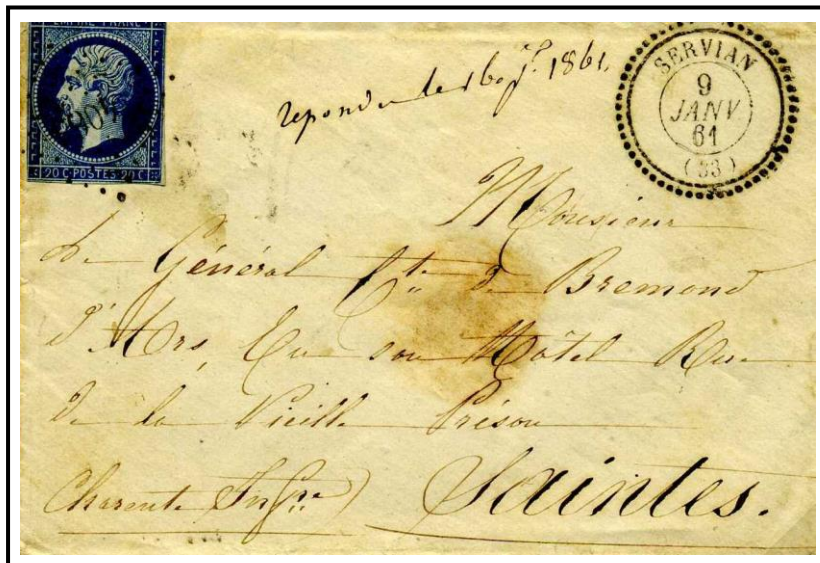 EMPIRE FRANC
20 C. POSTES 20 C.
repondu le 16 jr. 1861.
SERVIAN
9
JANV
61
(33)
Monsieur
Le Général Cte de Bremond
d'Ars, En son Hôtel Rue
de la Vieille Prison
Charente Infre) Saintes.